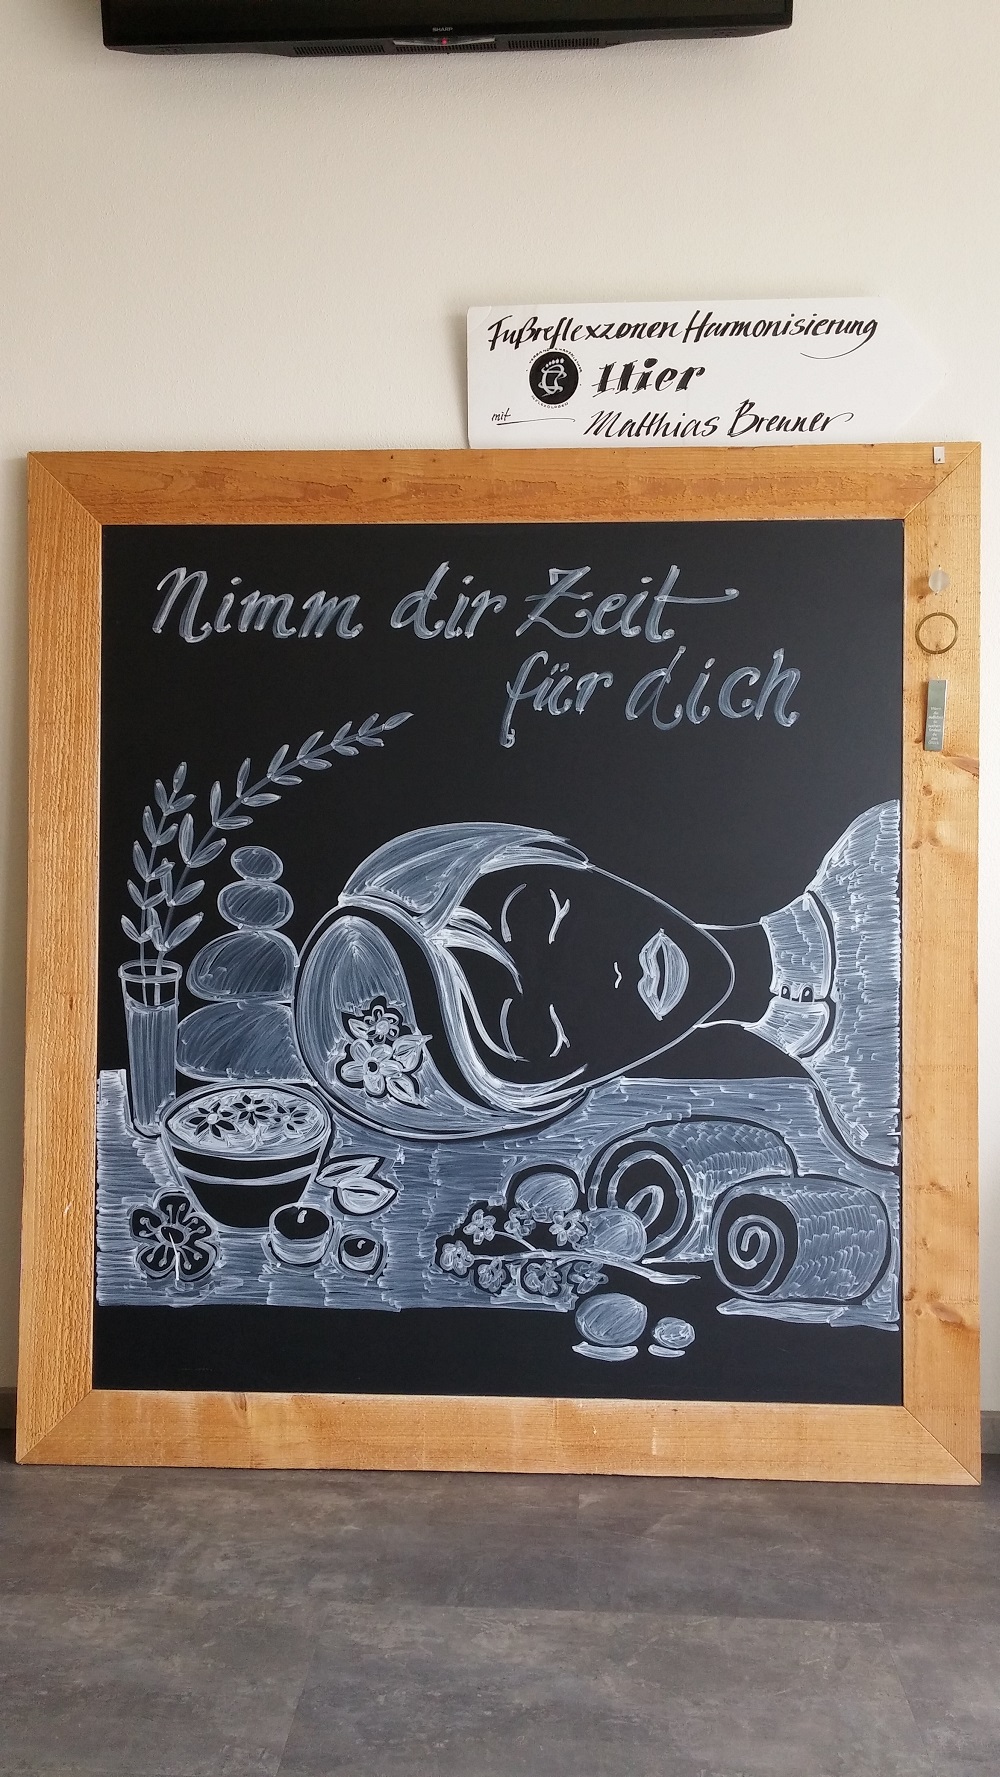 SHARP
Fußreflexzonen Harmonisierung
Hier
mit
Matthias Brenner
Nimm dir Zeit
für dich